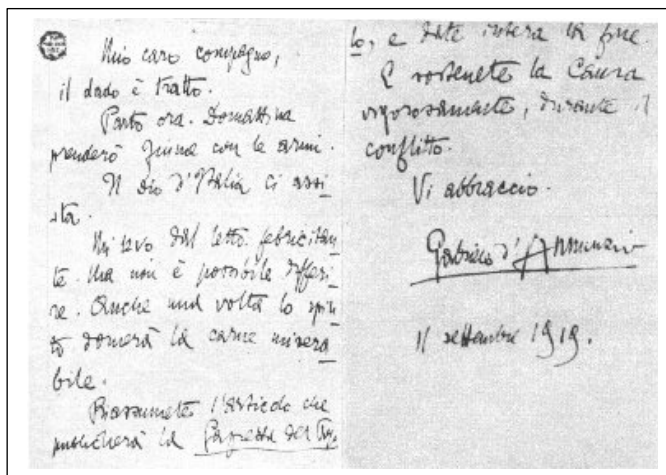 Mio caro compagno,
il dado è tratto.
Parto ora. Domattina
prenderò Fiume con le armi.
Il dio d'Italia ci assi
sta.
Mi levo dal letto febricitan
te. Ma non è possibile differi
re. Anche una volta lo spiri
to domerà la carne misera
bile.
Riassumete l'articolo che
pubblicherà la Gazzetta del Popo
lo, e date intera la fine.
E sostenete la Causa
vigorosamente, durante il
conflitto.
Vi abbraccio.
Gabriele d'Annunzio
11 settembre 1919.